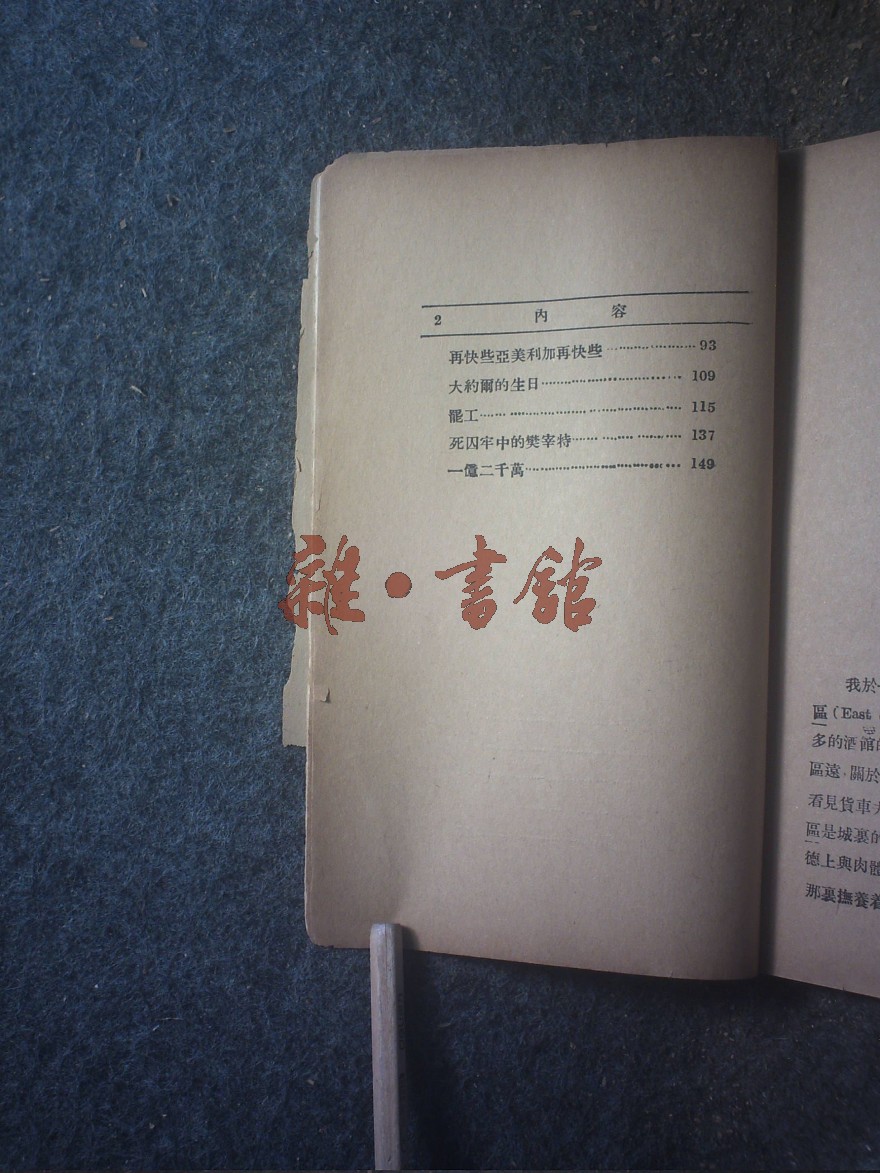 2 內容
再快些亞美利加再快些 93
大約爾的生日 109
罷工 115
死囚牢中的樊宰特 137
一億二千萬 149
雜·書館
我於
區（East
多的酒館的
區遠，關於
看見貨車
區是城裏的
德上與肉體
那裏撫養着